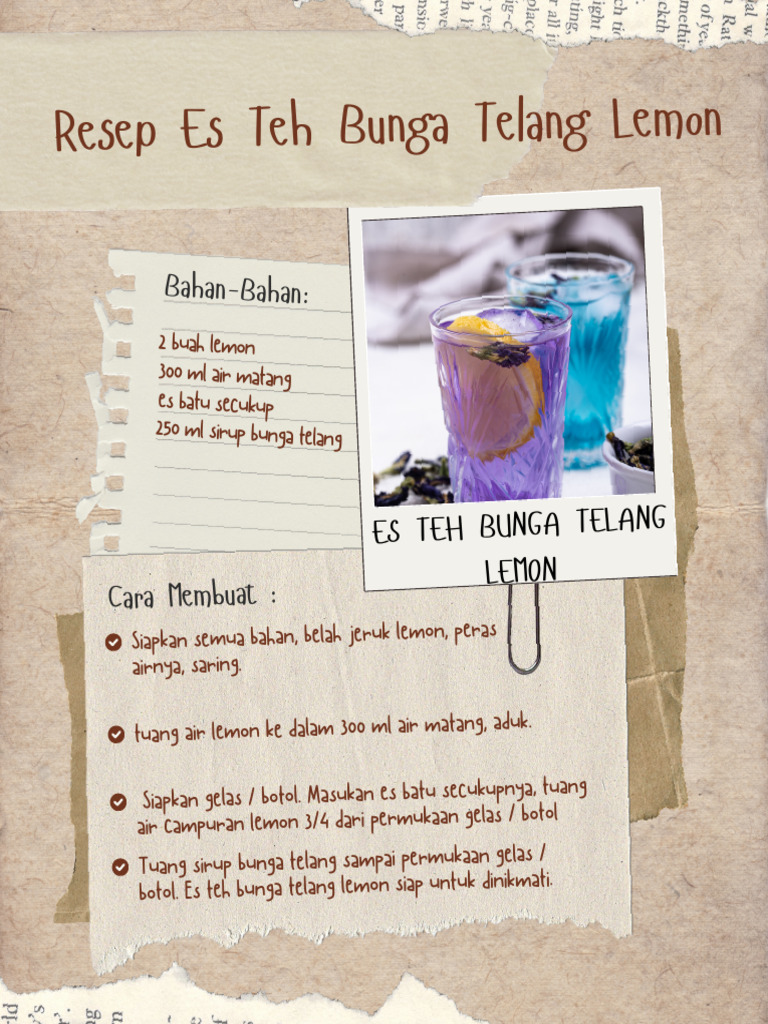 Resep Es Teh Bunga Telang Lemon
Bahan-Bahan:
2 buah lemon
300 ml air matang
es batu secukup
250 ml sirup bunga telang
ES TEH BUNGA TELANG
LEMON
Cara Membuat :
Siapkan semua bahan, belah jeruk lemon, peras
airnya, saring.
tuang air lemon ke dalam 300 ml air matang, aduk.
Siapkan gelas / botol. Masukan es batu secukupnya, tuang
air campuran lemon 3/4 dari permukaan gelas / botol
Tuang sirup bunga telang sampai permukaan gelas /
botol. Es teh bunga telang lemon siap untuk dinikmati.